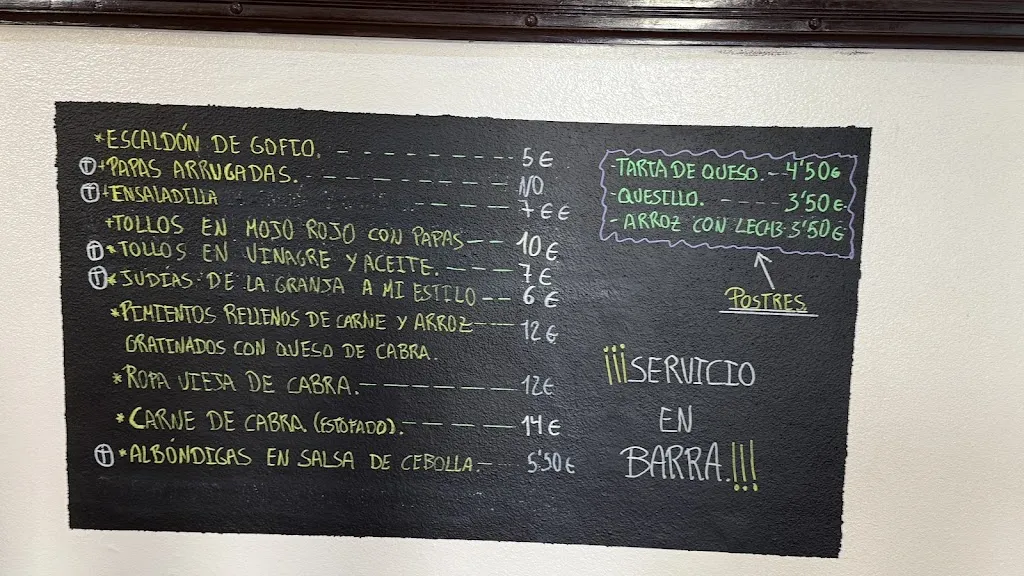 *ESCALDÓN DE GOFIO. - - - - - - - 5€
Ⓣ+PAPAS ARRUGADAS. - - - - - - - - NO
Ⓣ+ENSALADILLA - - - - - 7€€
+TOLLOS EN MOJO ROJO CON PAPAS - - 10€
Ⓣ*TOLLOS EN VINAGRE Y ACEITE. - - - - 7€
Ⓣ*JUDÍAS DE LA GRANJA A MI ESTILO - - 6€
*PIMIENTOS RELLENOS DE CARNE Y ARROZ - - - 12€
GRATINADOS CON QUESO DE CABRA.
*ROPA VIEJA DE CABRA. - - - - - - - 12€
*CARNE DE CABRA. (ESTOFADO). - - - - - 14€
Ⓣ*ALBÓNDIGAS EN SALSA DE CEBOLLA. - - 5'50€
-TARTA DE QUESO. - - 4'50€
-QUESILLO. - - - - - 3'50€
- ARROZ CON LECHE - 3'50€
POSTRES
¡¡¡SERVICIO
EN
BARRA.!!!